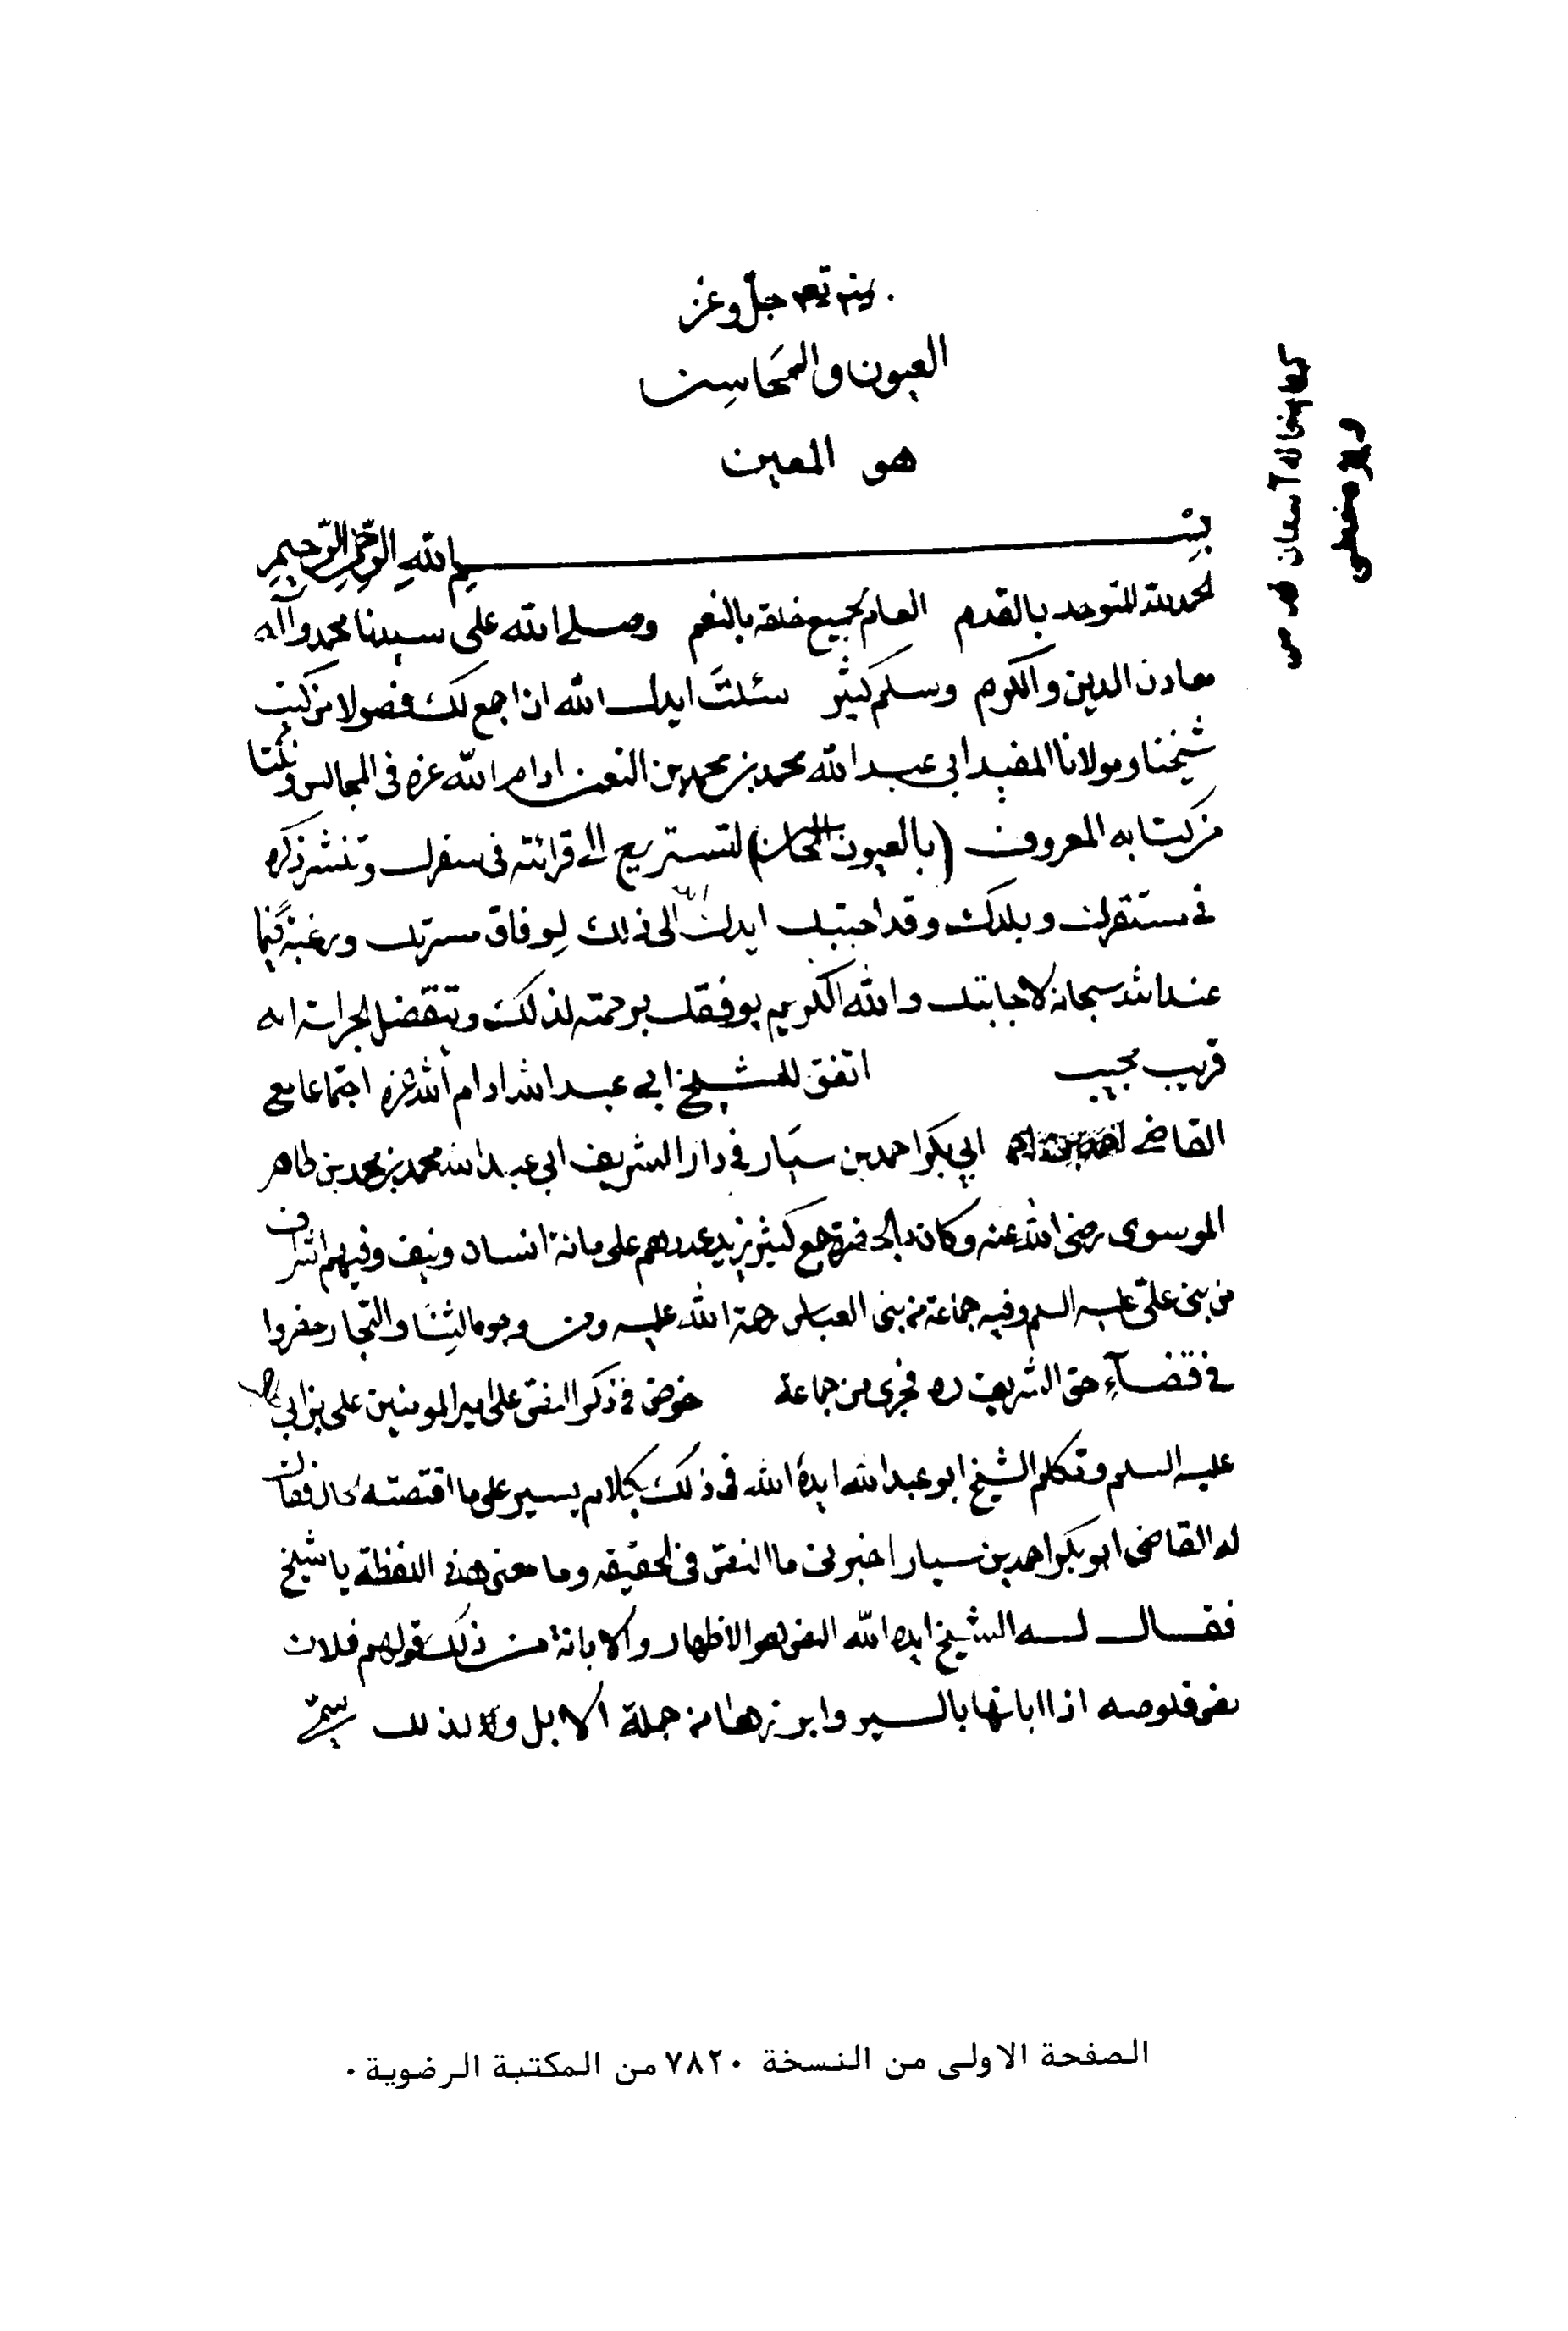 جل وعز
العيون والمحاسن
هو المعين
بسم الله الرحمن الرحيم
الحمد لله المتوحد بالقدم العام لجميع خلقه بالنعم وصلى الله على سيدنا محمد وآله
معادن الدين والكرم وسلم كثير سئلتَ ايدك الله ان اجمع لك فصولا من كتب
شيخنا ومولانا المفيد ابي عبد الله محمد بن محمد بن النعمن ادام الله عزه فى المجالس ونكتا
من كتابه المعروف (بالعيون المحاسن) لتستريح الى قرائته فى سفرك وتنشر ذكره
فى مستقرك وبلدك وقد اجبتك ايدك الله الى ذلك لوفاق مسرتك ورغبة فيما
عند الله سبحانه لاجابتك والله الكريم يوفقك برحمته لذلك ويتفضل انه
قريب مجيب اتفق للشيخ ابي عبد الله ادام الله عزه اجتماعا مع
القاضى ابي بكر احمد بن سيار فى دار الشريف ابي عبد الله محمد بن محمد بن طاهر
الموسوى رضى الله عنه وكان بالحضرة جمع كثير يزيد عددهم على مائة انسان ونيف وفيهم اشراف
من بنى علىّ عليه السلم وفيه جماعة من بنى العباس رحمة الله عليه ومن وجوه الناس والتجار حضروا
فى قضآء حق الشريف ره فجرى من جماعة خوض فى ذكر النص على امير المومنين على بن ابي طالب
عليه السلم وتكلم الشيخ ابو عبد الله ايده الله فى ذلك بكلام يسير على ما اقتضته الحال فقال
له القاضى ابو بكر احمد بن سيار اخبرنى ما النص فى الحقيقه وما معنى هذه اللفظة يا شيخ
فقال له الشيخ ايده الله النص هو الاظهار والابانة من ذلك قولهم فلان
نص قلوصه اذا ابانها بالسير وابرزها من جملة الابل ولذلك سمّى
الصفحة الاولى من النسخة ٧٨٢٠ من المكتبة الرضوية ٠